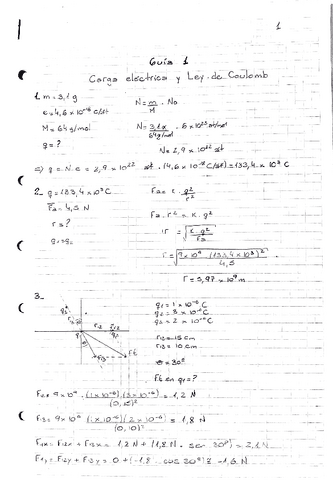 1
Guía 1
Carga eléctrica y Ley de Coulomb
1. m = 3,1 g
N = m/M . No
e = 4,6 x 10⁻¹⁸ C/at
M = 64 g/mol
N = 3,1 g / 64 g/mol . 6 x 10²³ at/mol
q = ?
N = 2,9 x 10²² at
=> q = N.e = 2,9 x 10²² at . (4,6 x 10⁻¹⁸ C/at) = 133,4 x 10³ C
2_ q = 133,4 x 10³ C
Fe = K . q²/r²
Fe = 4,5 N
Fe . r² = K . q²
r = ?
r = √(K . q² / Fe)
q₁ = q₂
r = √(9 x 10⁹ (133,4 x 10³)² / 4,5)
r = 5,97 x 10⁹ m
3_
q₁ = 1 x 10⁻⁶ C
q₂ = 3 x 10⁻⁶ C
q₃ = 2 x 10⁻⁶ C
r₁₂ = 15 cm
r₁₃ = 10 cm
θ = 30º
Ft en q₁ = ?
F₁₂ = 9 x 10⁹ . (1 x 10⁻⁶)(3 x 10⁻⁶) / (0,15)² = 1,2 N
F₁₃ = 9 x 10⁹ (1 x 10⁻⁶)(2 x 10⁻⁶) / (0,10)² = 1,8 N
F₁x = F₁₂x + F₁₃x = 1,2 N + (1,8 N . sen 30º) = 2,1 N
F₁y = F₁₂y + F₁₃y = 0 + (-1,8 . cos 30º) = -1,6 N